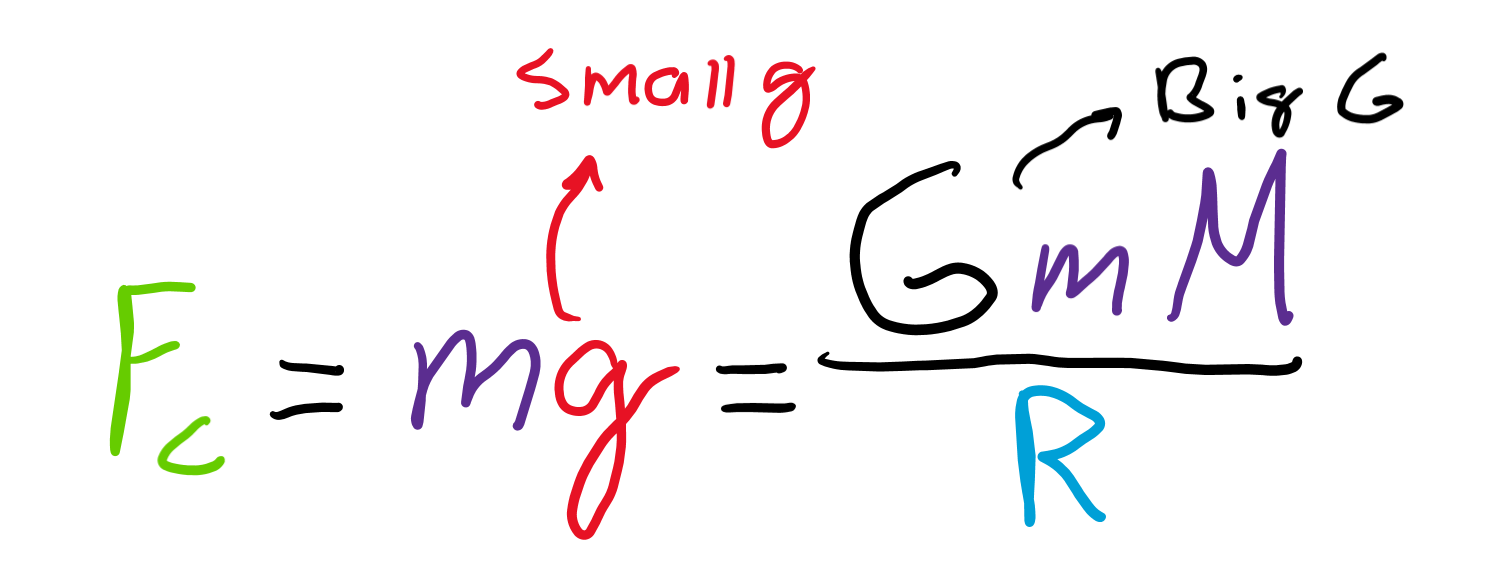 Small g
Big G
F_c = mg = \frac{GmM}{R}